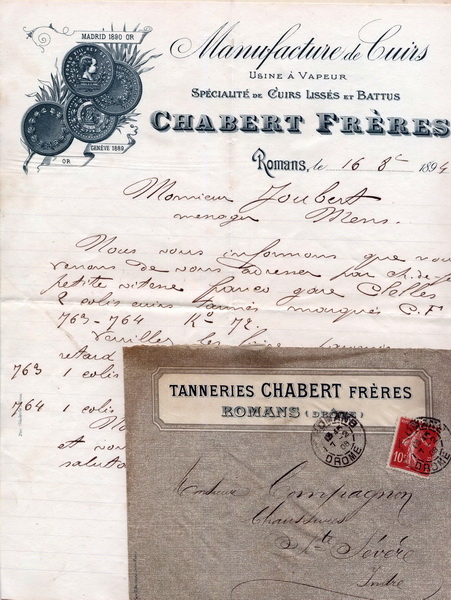 MADRID 1890 OR
GENÈVE 1889
OR
Manufacture de Cuirs
USINE À VAPEUR
SPÉCIALITÉ DE CUIRS LISSÉS ET BATTUS
CHABERT FRÈRES
Romans, le 16 8bre 1894
Monsieur Joubert
Mens.
Nous vous informons que vous
venons de vous adresser par ch. de f.
petite vitesse franco gare Clelles
2 colis cuirs tannés marqués C. F
763-764 Ko 72.
Veuillez les
retard
763 1 colis
764 1 colis
et vous
saluta
TANNERIES CHABERT FRÈRES
ROMANS (DRÔME)
ROMANS
DROME
10c
Monsieur Compagnon
Chaussures
Ste Sévère
Indre